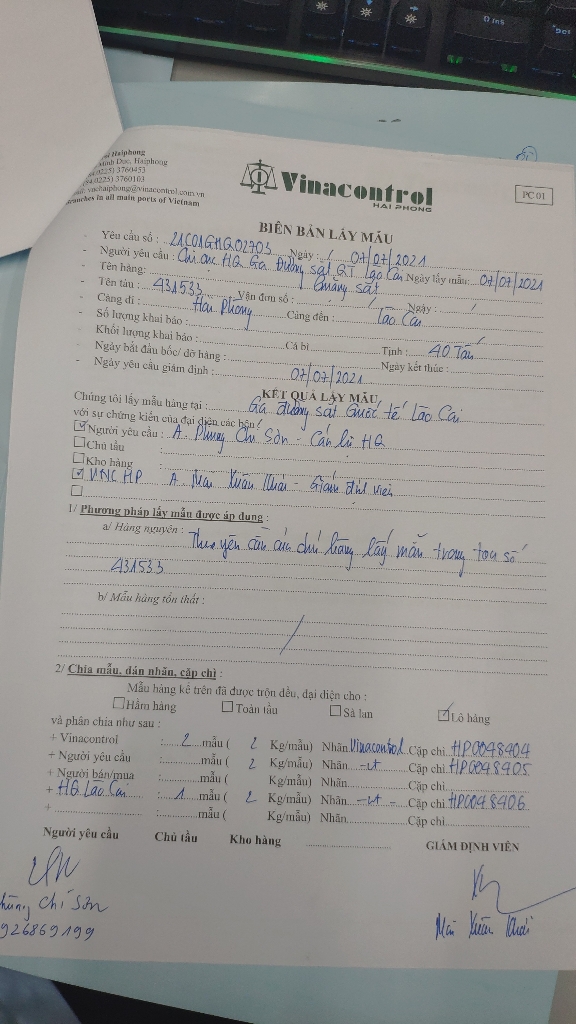 Haiphong
Minh Duc, Haiphong
(0225) 3760453
(0225) 3760103
vnchaiphong@vinacontrol.com.vn
branches in all main ports of Vietnam
Vinacontrol
HAI PHONG
PC 01
BIÊN BẢN LẤY MẪU
- Yêu cầu số : 21C01GHQ02703 Ngày : 07/07/2021
- Người yêu cầu : Chi cục HQ Ga Đường sắt QT Lào Cai Ngày lấy mẫu: 07/07/2021
- Tên hàng: Quặng sắt
- Tên tàu : 431533 Vận đơn số : / Ngày : /
- Cảng đi : Hải Phòng Cảng đến : Lào Cai
- Số lượng khai báo :
- Khối lượng khai báo : Cả bì Tịnh : 40 Tấn
- Ngày bắt đầu bốc/ dỡ hàng : Ngày kết thúc :
- Ngày yêu cầu giám định : 07/07/2021
KẾT QUẢ LẤY MẪU
Chúng tôi lấy mẫu hàng tại : Ga đường sắt Quốc tế Lào Cai
với sự chứng kiến của đại diện các bên:
Người yêu cầu : A. Phùng Chí Sơn - Cán bộ HQ
Chủ tầu :
Kho hàng :
VNC HP A. Mai Xuân Khải - Giám định viên
1/ Phương pháp lấy mẫu được áp dụng :
a/ Hàng nguyên : Theo yêu cầu của chủ hàng lấy mẫu trong toa số
431533
b/ Mẫu hàng tổn thất :
/
2/ Chia mẫu, dán nhãn, cặp chì :
Mẫu hàng kể trên đã được trộn đều, đại diện cho :
Hầm hàng Toàn tầu Sà lan Lô hàng
và phân chia như sau :
+ Vinacontrol : 2 mẫu ( 2 Kg/mẫu) Nhãn Vinacontrol Cặp chì HP0048404
+ Người yêu cầu : mẫu ( 2 Kg/mẫu) Nhãn -nt- Cặp chì HP0048405
+ Người bán/mua : mẫu ( Kg/mẫu) Nhãn Cặp chì
+ HQ Lào Cai : 1 mẫu ( 2 Kg/mẫu) Nhãn -nt- Cặp chì HP0048406
+ : mẫu ( Kg/mẫu) Nhãn Cặp chì
Người yêu cầu Chủ tầu Kho hàng GIÁM ĐỊNH VIÊN
Phùng Chí Sơn
926869199
Mai Xuân Khải